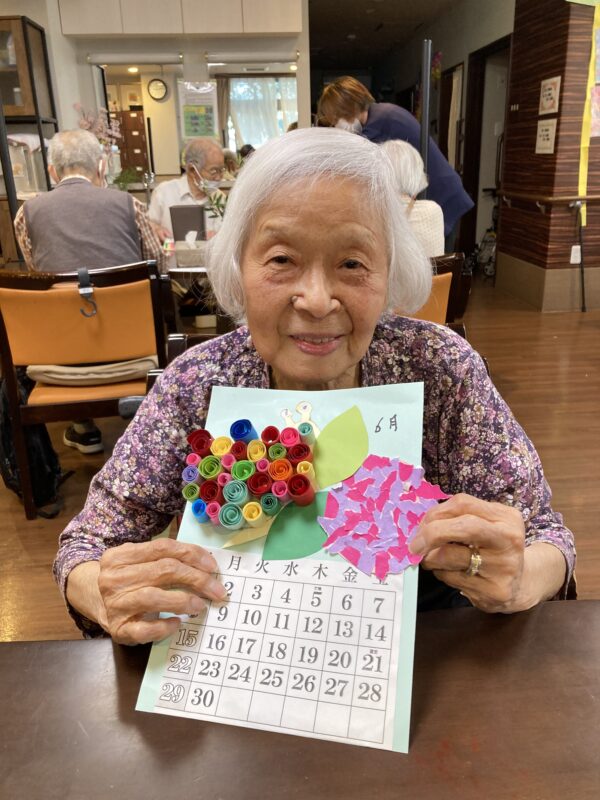 6月
月 火 水 木 金 土
2 3 4 5 6 7
9 10 11 12 13 14
15 16 17 18 19 20 21
22 23 24 25 26 27 28
29 30